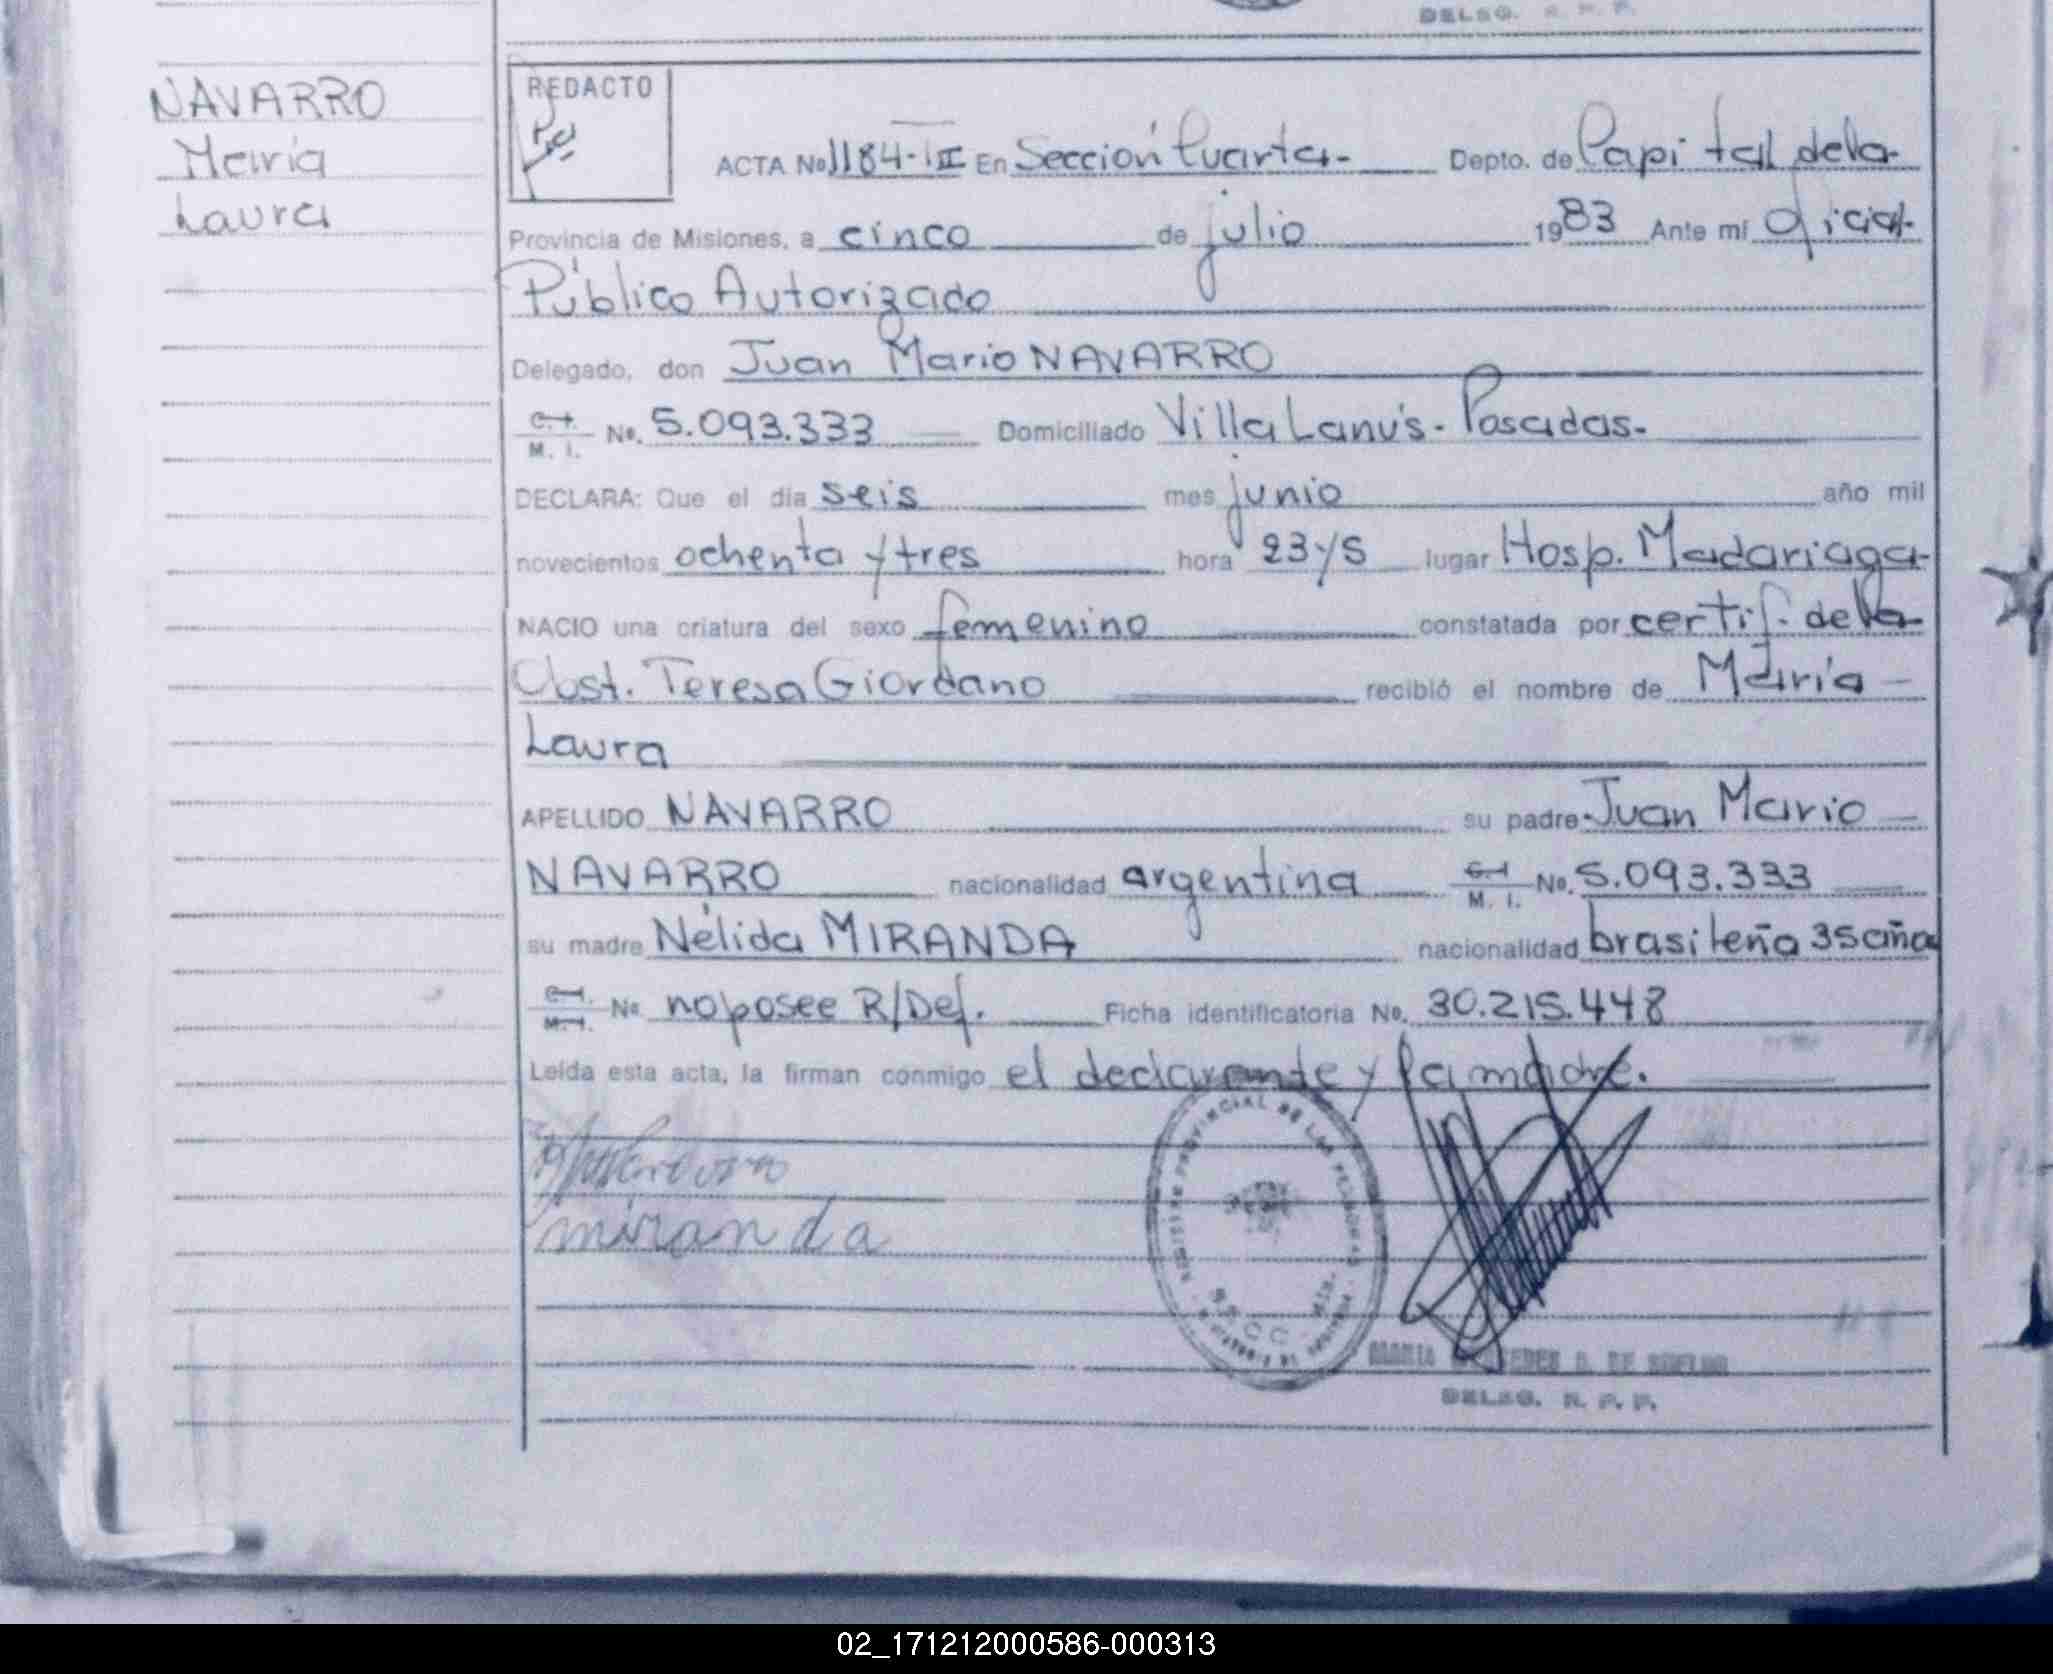 DELEG. R. P. P.
NAVARRO
María
Laura
REDACTO
ACTA No 1184-III En Sección Cuarta- Depto. de Capital de la
Provincia de Misiones, a cinco de julio 1983 Ante mí Oficial
Público Autorizado
Delegado, don Juan Mario NAVARRO
C. I. M. I. No. 5.093.333 Domiciliado Villa Lanús- Posadas-
DECLARA: Que el día seis mes junio año mil
novecientos ochenta y tres hora 23 y 5 lugar Hosp. Madariaga-
NACIO una criatura del sexo femenino constatada por certif. de la
Obst. Teresa Giordano recibió el nombre de María
Laura
APELLIDO NAVARRO su padre Juan Mario
NAVARRO nacionalidad argentina C. I. M. I. No. 5.093.333
su madre Nélida MIRANDA nacionalidad brasileña 35 años
C. I. M. I. No no posee R/Def. Ficha identificatoria No. 30.215.448
Leída esta acta, la firman conmigo el declarante y la madre.
miranda
REGISTRO PROVINCIAL DE LAS PERSONAS
DELEG. R. P. P.
02_171212000586-000313